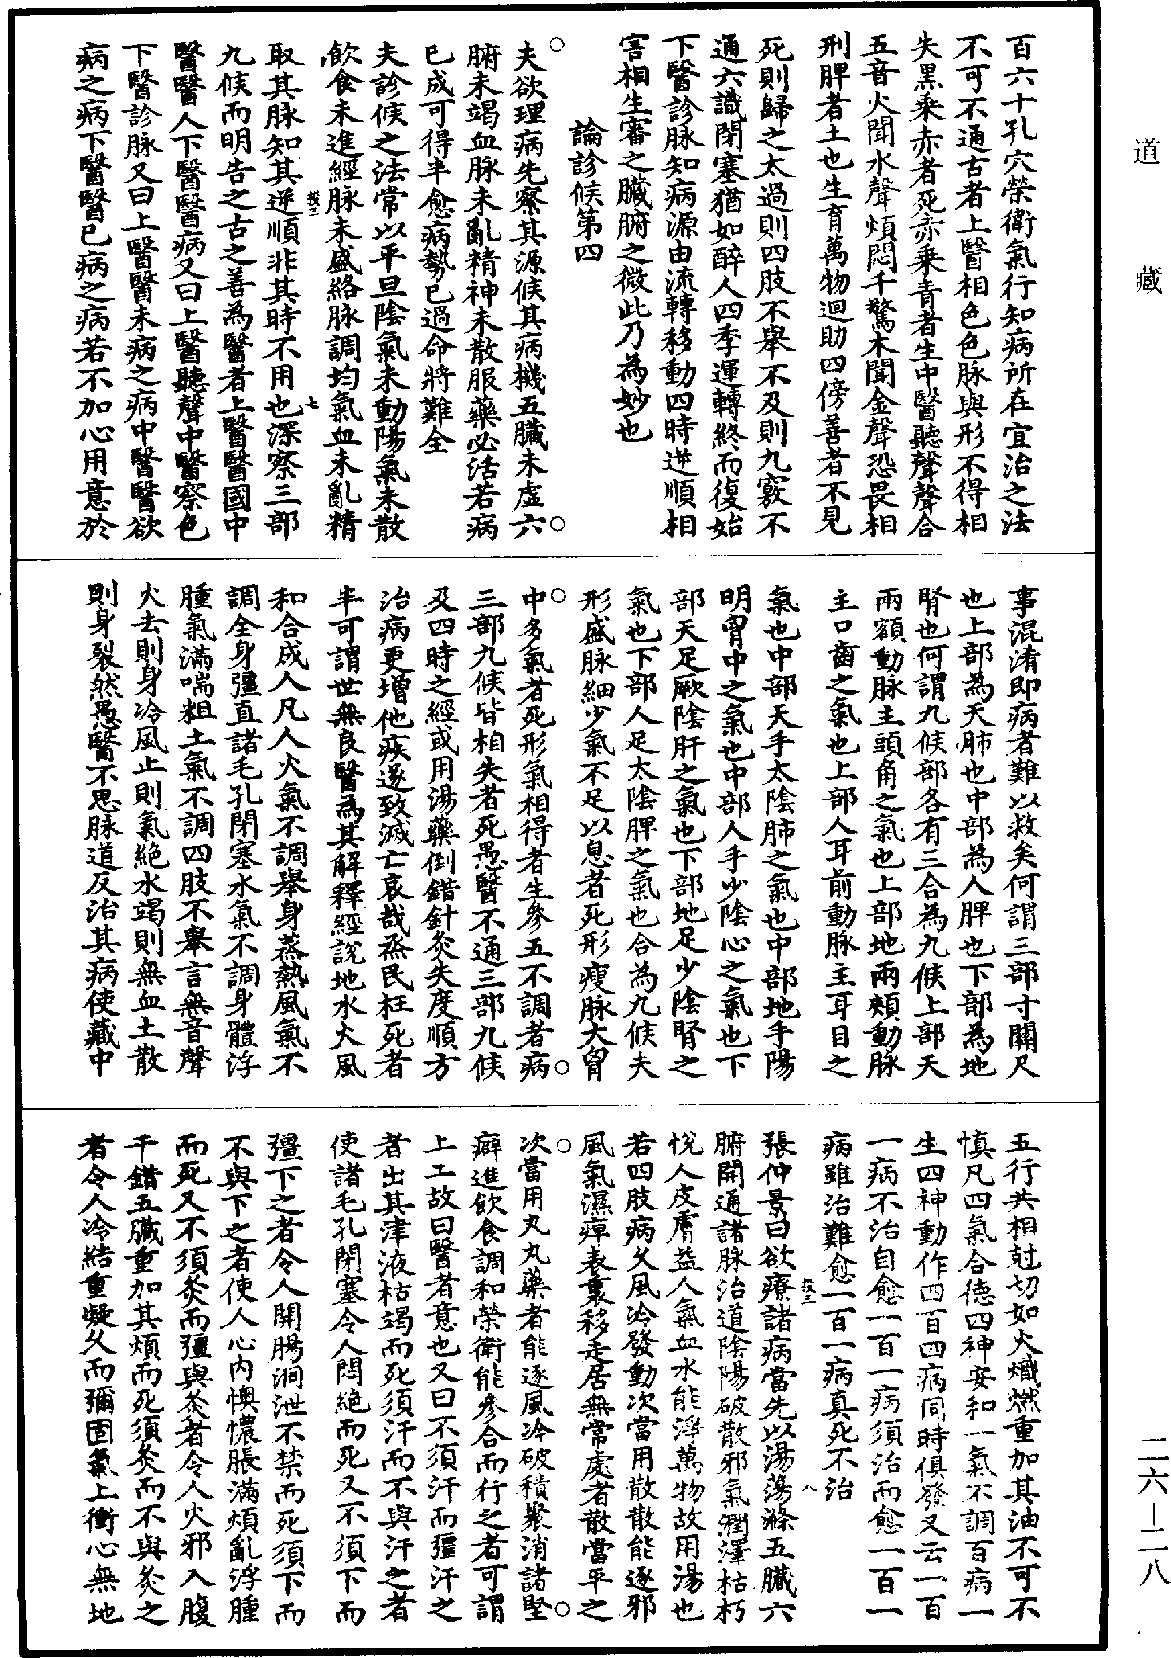 道藏
百六十孔穴榮衛氣行知病所在宜治之法
不可不通古者上醫相色色脉與形不得相
失黑乘赤者死赤乘青者生中醫聽聲聲合
五音火聞水聲煩悶干驚木聞金聲恐畏相
刑脾者土也生育萬物迴助四傍善者不見
死則歸之太過則四肢不舉不及則九竅不
通六識閉塞猶如醉人四季運轉終而復始
下醫診脉知病源由流轉移動四時逆順相
害相生審之臟腑之微此乃為妙也
論診候第四
夫欲理病先察其源候其病機五臟未虛六
腑未竭血脉未亂精神未散服藥必活若病
已成可得半愈病勢已過命將難全
夫診候之法常以平旦陰氣未動陽氣未散
飲食未進經脉未盛絡脉調均氣血未亂精
取其脉知其逆順非其時不用也深察三部
九候而明告之古之善為醫者上醫醫國中
醫醫人下醫醫病又曰上醫聽聲中醫察色
下醫診脉又曰上醫醫未病之病中醫醫欲
病之病下醫醫已病之病若不加心用意於
事混淆即病者難以救矣何謂三部寸關尺
也上部為天肺也中部為人脾也下部為地
腎也何謂九候部各有三合為九候上部天
兩額動脉主頭角之氣也上部地兩頰動脉
主口齒之氣也上部人耳前動脉主耳目之
氣也中部天手太陰肺之氣也中部地手陽
明胷中之氣也中部人手少陰心之氣也下
部天足厥陰肝之氣也下部地足少陰腎之
氣也下部人足太陰脾之氣也合為九候夫
形盛脉細少氣不足以息者死形瘦脉大胷
中多氣者死形氣相得者生參五不調者病
三部九候皆相失者死愚醫不通三部九候
及四時之經或用湯藥倒錯針灸失度順方
治病更增他疾遂致滅亡哀哉烝民枉死者
半可謂世無良醫為其解釋經說地水火風
和合成人凡人火氣不調舉身蒸熱風氣不
調全身彊直諸毛孔閉塞水氣不調身體浮
腫氣滿喘粗土氣不調四肢不舉言無音聲
火去則身冷風止則氣絕水竭則無血土散
則身裂然愚醫不思脉道反治其病使藏中
五行共相尅切如火熾燃重加其油不可不
慎凡四氣合德四神安和一氣不調百病一
生四神動作四百四病同時俱發又云一百
一病不治自愈一百一病須治而愈一百一
病雖治難愈一百一病真死不治
張仲景曰欲療諸病當先以湯蕩滌五臟六
腑開通諸脉治道陰陽破散邪氣潤澤枯朽
悅人皮膚益人氣血水能淨萬物故用湯也
若四肢病久風冷發動次當用散散能逐邪
風氣濕痺表裏移走居無常處者散當平之
次當用丸丸藥者能逐風冷破積聚消諸堅
癖進飲食調和榮衛能參合而行之者可謂
上工故曰醫者意也又曰不須汗而彊汗之
者出其津液枯竭而死須汗而不與汗之者
使諸毛孔閉塞令人悶絕而死又不須下而
彊下之者令人開腸洞泄不禁而死須下而
不與下之者使人心內懊憹脹滿煩亂浮腫
而死又不須灸而彊與灸者令人火邪入腹
干錯五臟重加其煩而死須灸而不與灸之
者令人冷結重凝久而彌固氣上衝心無地
二六—二八